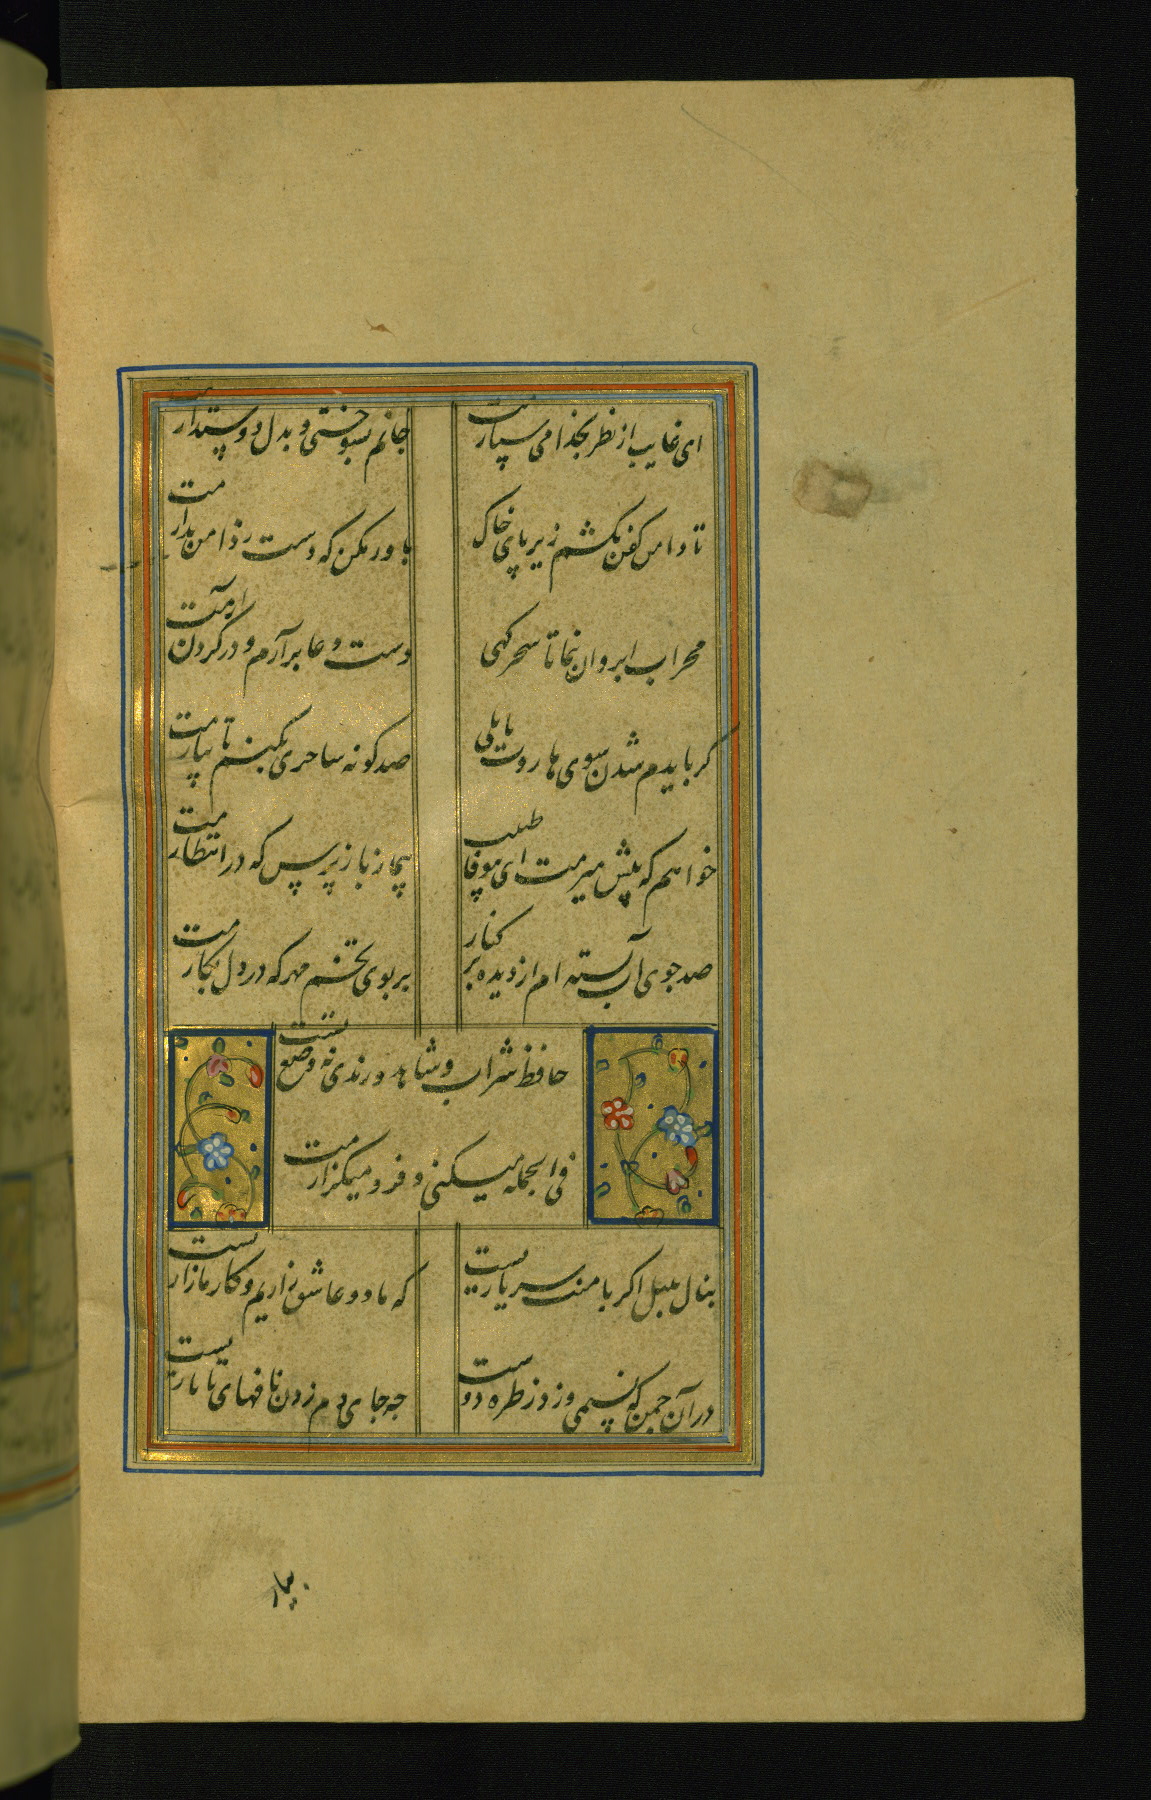 ای غایب از نظر بخدا می سپارمت
جانم بسوختی و بدل دوستدارمت
تا دامن کفن نکشم زیر پای خاک
باور مکن که دست ز دامن بدارمت
محراب ابروان بنما تا سحرکهی
دست دعا برآرم و در کردن آرمت
کر بایدم شدن سوی هاروت بابلی
صد کونه ساحری بکنم تا بیارمت
خواهم که پیش میرمت ای بیوفا طبیب
بیمار باز پرس که در انتظارمت
صد جوی آب بسته ام از دیده بر کنار
بر بوی تخم مهر که در دل بکارمت
حافظ شراب و شاهد و رندی نه وضع تست
فی الجمله میکنی و فرو میکزارمت
بنال بلبل اکر با منت سر یاریست
که ما دو عاشق زاریم و کار ما زاریست
در آن چمن که نسیمی وزد ز طره دوست
چه جای دم زدن نافهای تاتاریست
بیار